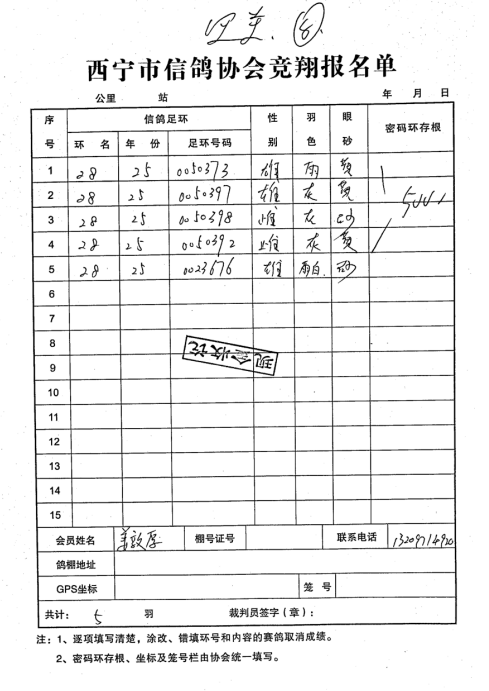 西宁市信鸽协会竞翔报名单
公里 站 年 月 日
序号 信鸽足环 性别 羽色 眼砂 密码环存根
环 名 年 份 足环号码
1 28 25 0050373 雄 雨 黄
2 28 25 0050397 雄 灰 黄
3 28 25 0050398 雌 灰 砂
4 28 25 0050392 雌 灰 黄
5 28 25 0023676 雄 雨白 砂
6
7
8
现金收讫
9
10
11
12
13
14
15
会员姓名 姜敦厚 棚号证号 联系电话
鸽棚地址
GPS坐标 笼 号
共计: 5 羽 裁判员签字(章):
注:1、逐项填写清楚,涂改、错填环号和内容的赛鸽取消成绩。
2、密码环存根、坐标及笼号栏由协会统一填写。